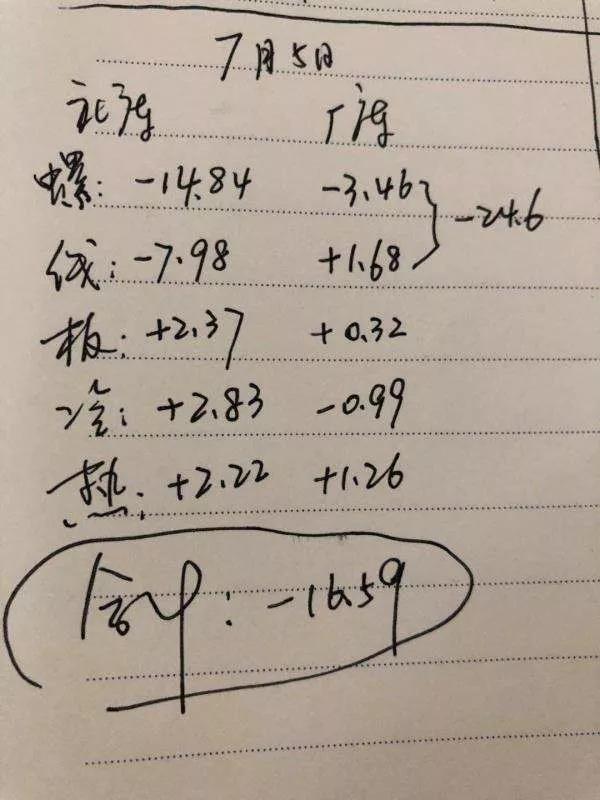 7月5日
社库 厂库
螺: -14.84 -3.46
线: -7.98 +1.68
-24.6
板: +2.37 +0.32
冷: +2.83 -0.99
热: +2.22 +1.26
合计: -16.59